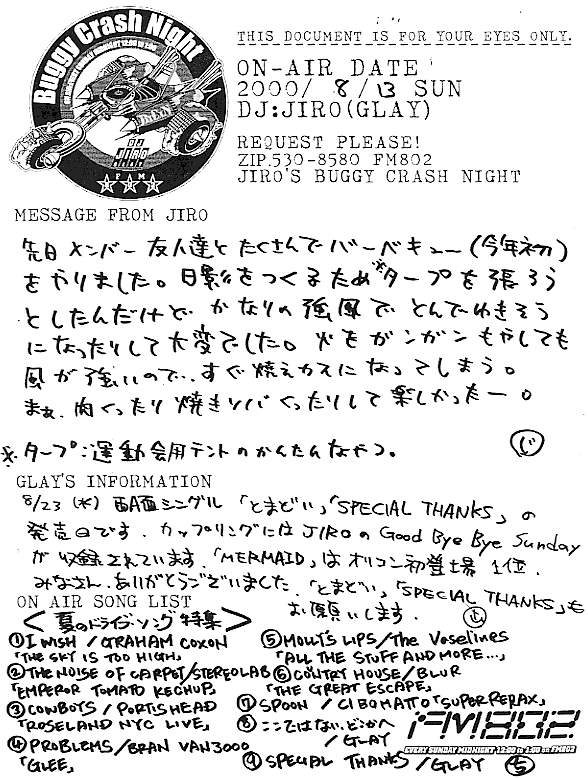 Buggy Crash Night
JIRO
FAM
THIS DOCUMENT IS FOR YOUR EYES ONLY.
ON-AIR DATE
2000/ 8/13 SUN
DJ:JIRO(GLAY)
REQUEST PLEASE!
ZIP.530-8580 FM802
JIRO'S BUGGY CRASH NIGHT
MESSAGE FROM JIRO
先日メンバー友人達とたくさんでバーベキュー(今年初)
をやりました。日影をつくるため※タープを張ろう
としたんだけど、かなりの強風でとんでいきそう
になったりして大変でした。火をガンガンもやしても
風が強いので、すぐ焼えカスになってしまう。
まぁ、肉くったり焼きソバくったりして楽しかったー。
※タープ:運動会用テントのかんたんなやつ。
じ
GLAY'S INFORMATION
8/23 (水) 両A面シングル「とまどい」「SPECIAL THANKS」の
発売日です。カップリングにはJIROのGood Bye Bye Sunday
が収録されています。「MERMAID」はオリコン初登場1位.
みなさん、ありがとうございました。「とまどい」「SPECIAL THANKS」も
お願いします。
ON AIR SONG LIST
<夏のドライブソング特集>
①I WISH / GRAHAM COXON
「THE SKY IS TOO HIGH」
②THE NOISE OF CARPET/STEREOLAB
「EMPEROR TOMATO KECHUP」
③COWBOYS / PORTISHEAD
「ROSELAND NYC LIVE」
④PROBLEMS / BRAN VAN3000
「GLEE」
⑤MOLLY'S LIPS/The Vaselines
「ALL THE STUFF AND MORE...」
⑥COUNTRY HOUSE/BLUR
「THE GREAT ESCAPE」
⑦SPOON / CIBOMATTO「SUPER RELAX」
⑧ここではない、どこかへ
/ GLAY
⑨SPECIAL THANKS/GLAY
FM802
EVERY SUNDAY MIDNIGHT 12:00 to 1:00 on FM802